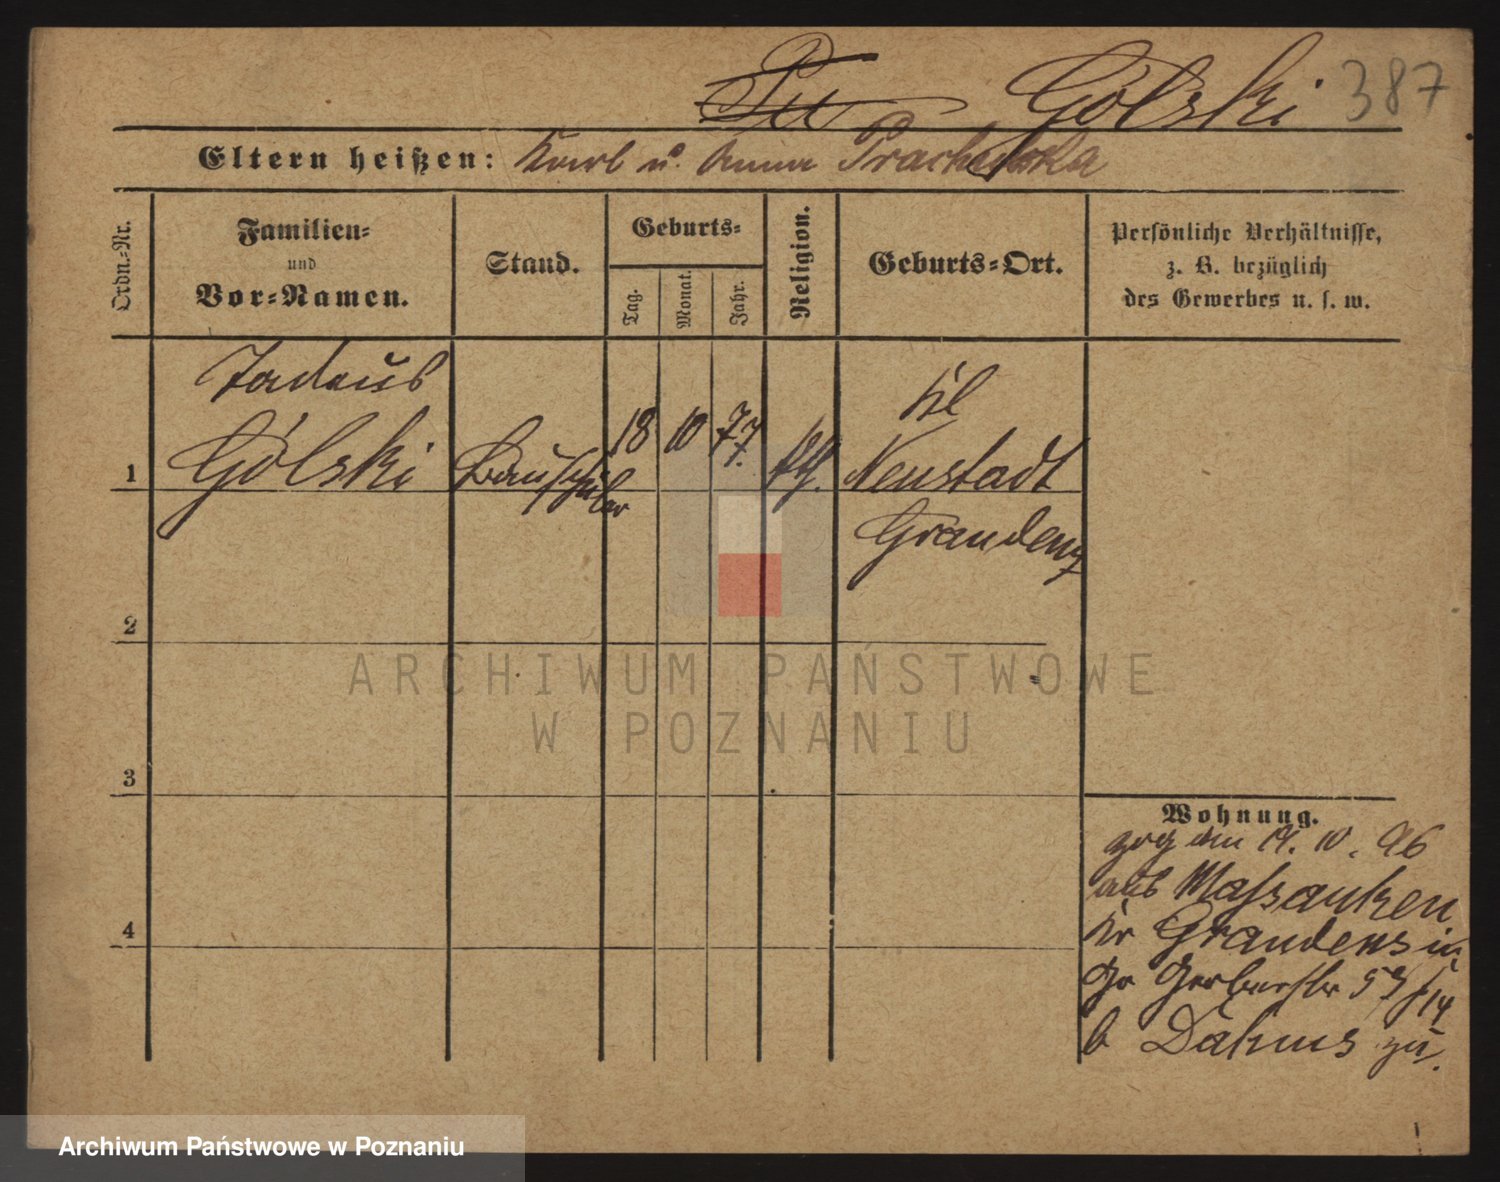 Gólski 387
Eltern heißen: Karl u. Anna
Ordn.-Nr.
Familien-
und
Vor-Namen.
Stand.
Geburts-
Tag.
Monat.
Jahr.
Religion.
Geburts-Ort.
Persönliche Verhältnisse,
z. B. bezüglich
des Gewerbes u. s. w.
Tadeus
Gólski
Bauschüler
18 10 77.
kth.
Kl
Neustadt
Graudenz
1
2
3
4
ARCHIWUM PAŃSTWOWE
W POZNANIU
Wohnung.
zog den 19. 10. 96
aus Massanken
Kr Graudenz in
Gerberstr
b Dahms zu.
Archiwum Państwowe w Poznaniu